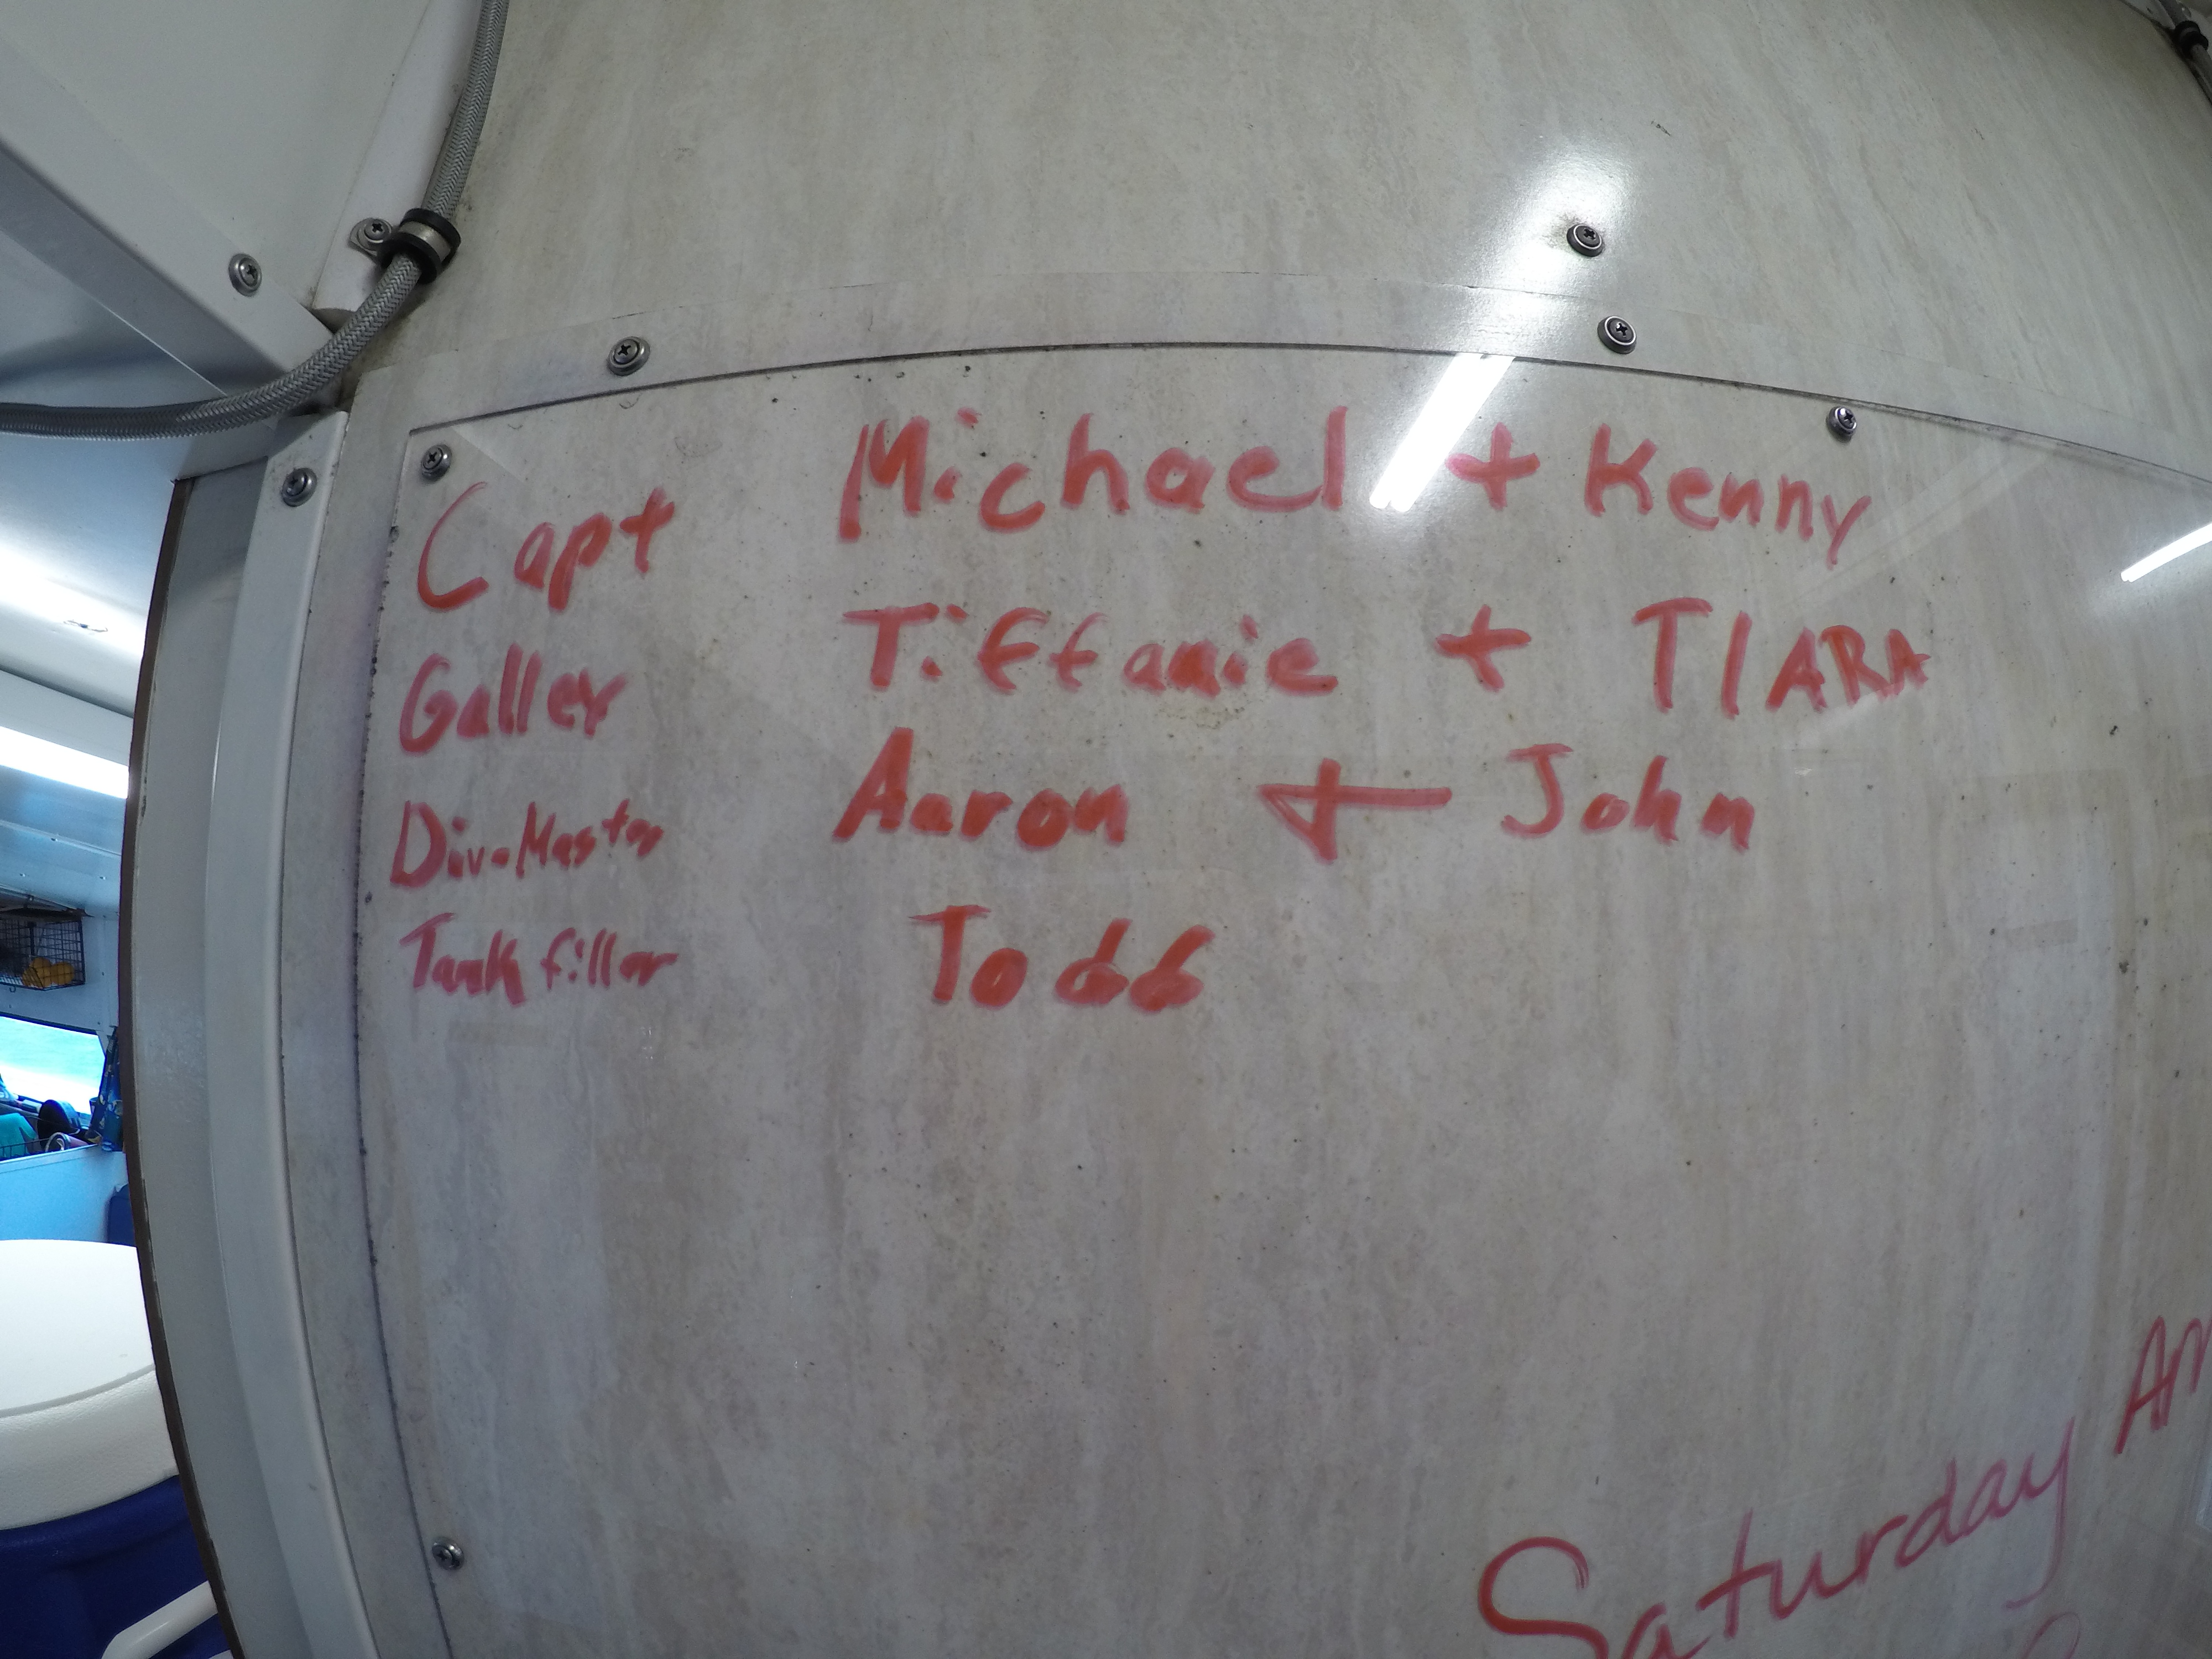 Capt Michael + Kenny
Galley Tiffanie + TIARA
DiveMaster Aaron + John
Tank filler Todd
Saturday